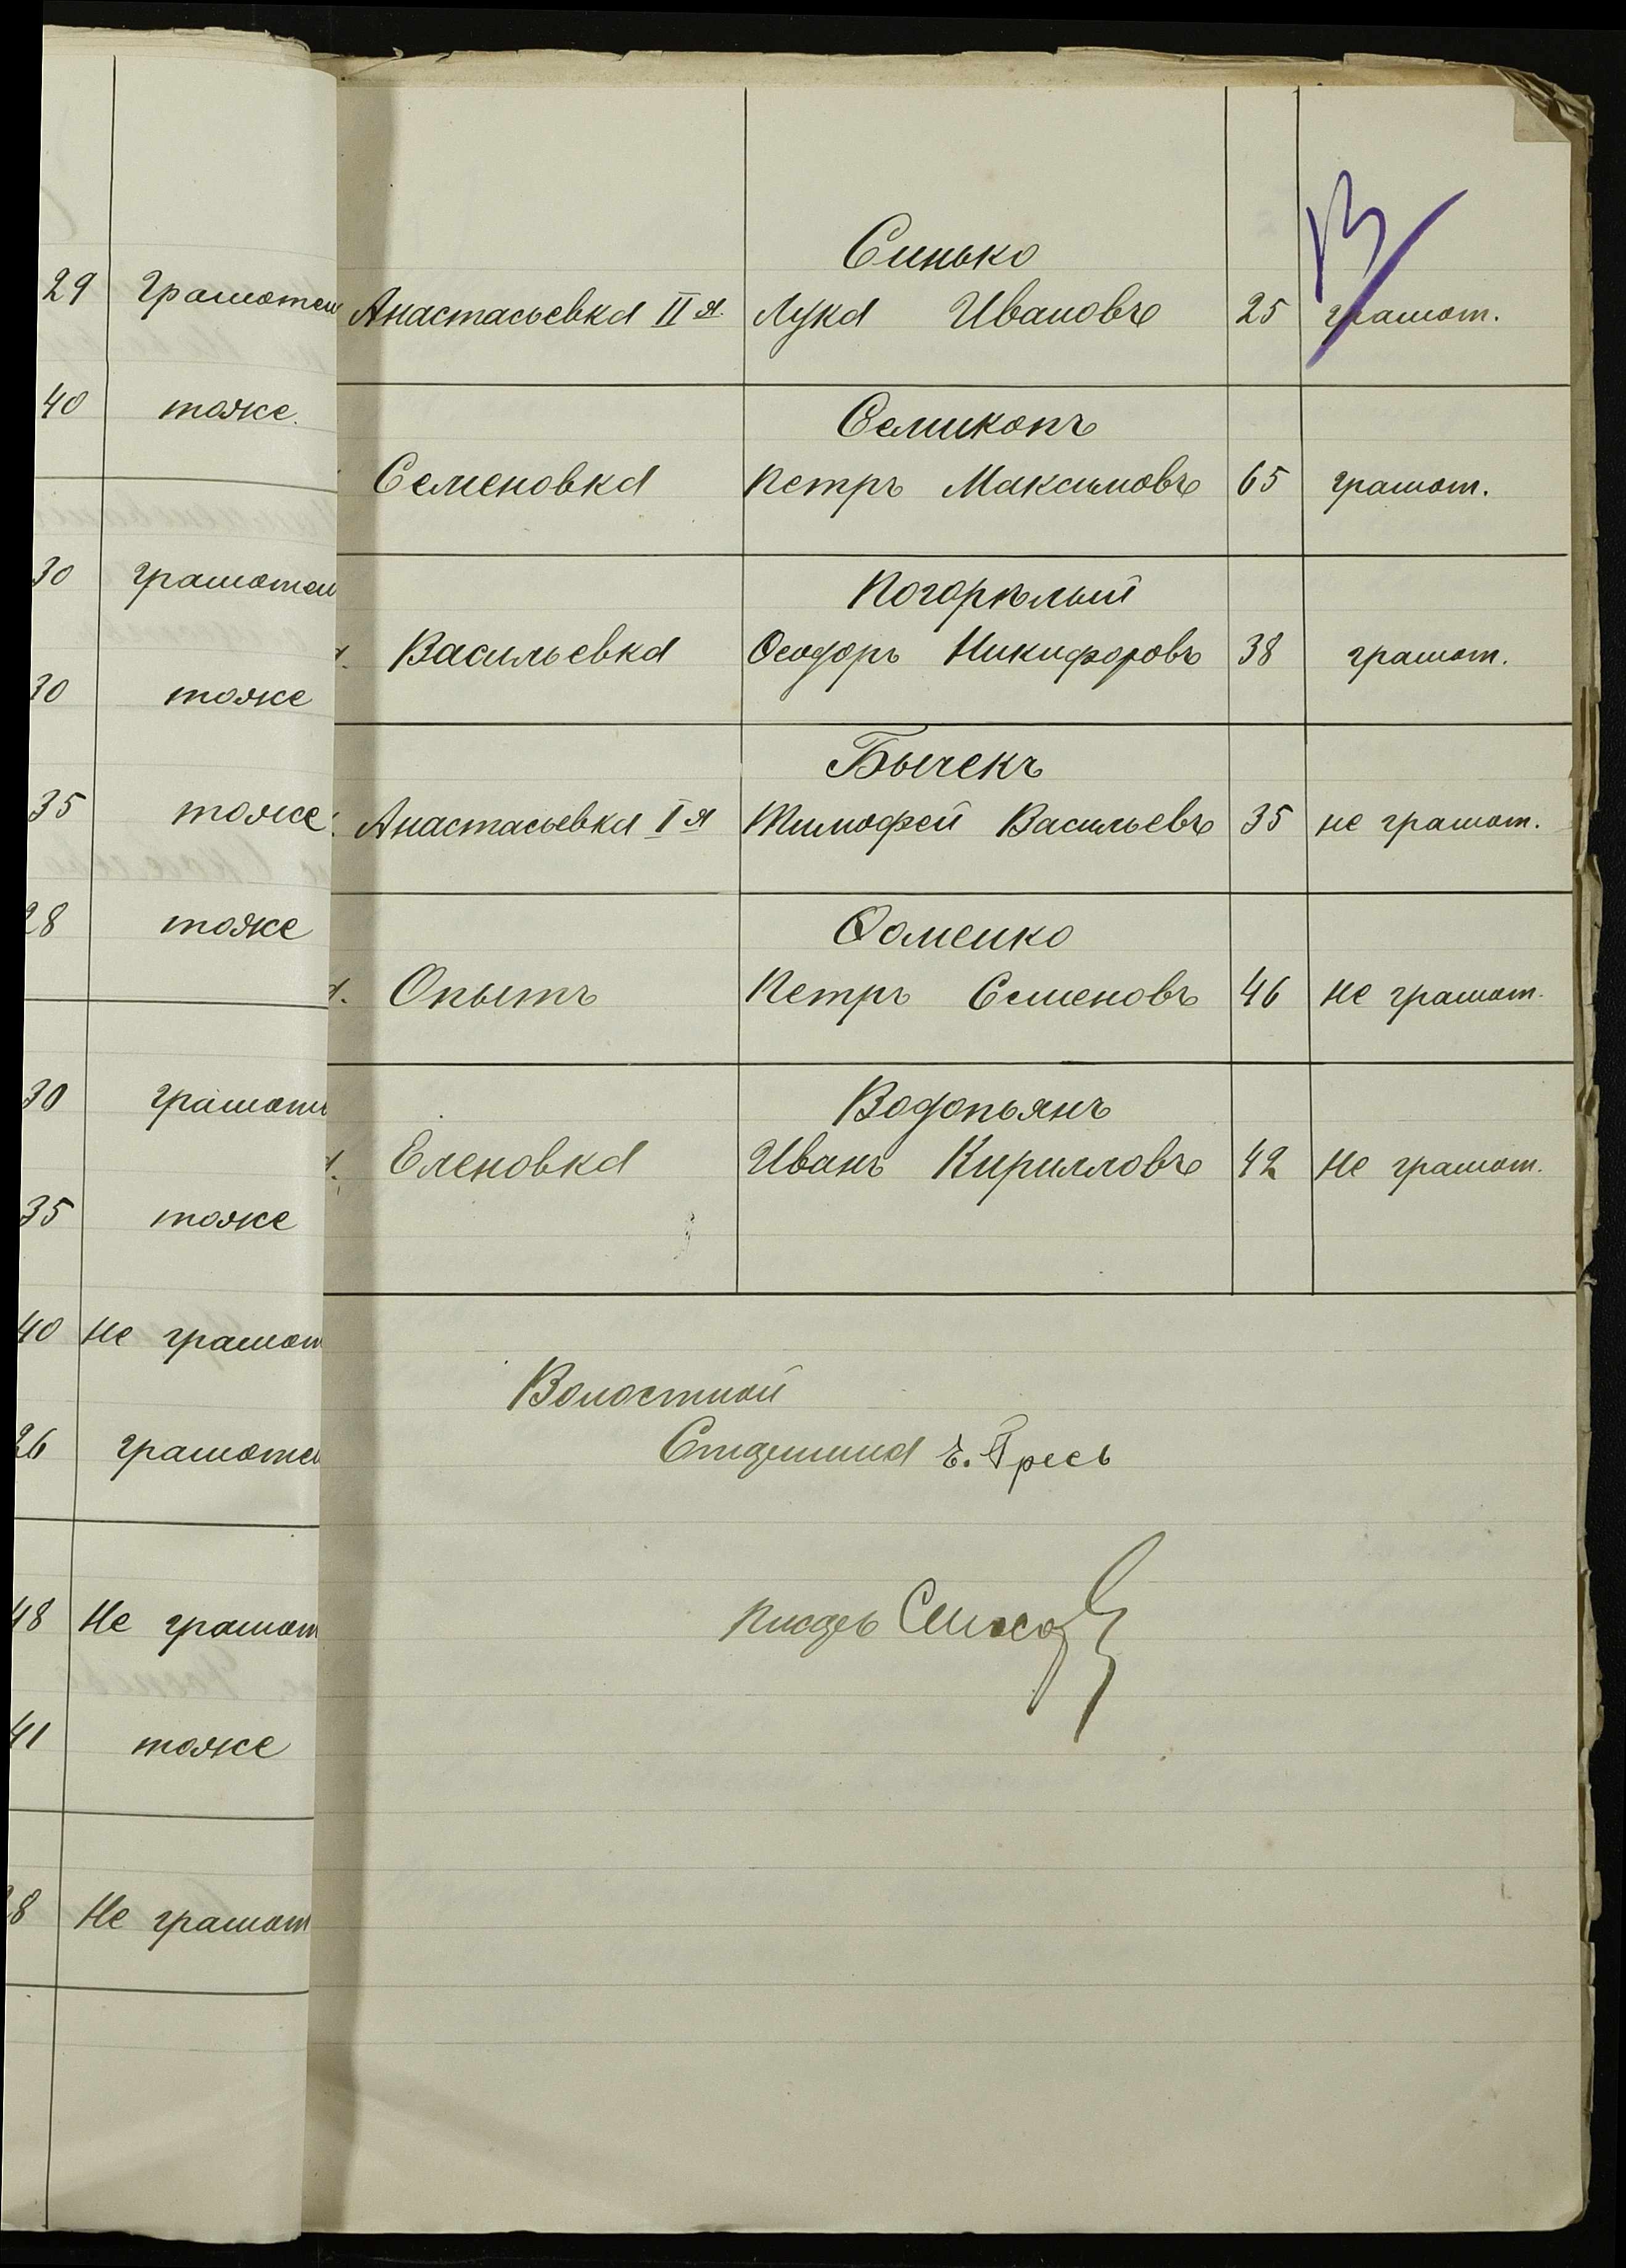 29 грамотен
40 тоже.
30 грамотен
30 тоже
35 тоже
28 тоже
30 грамотн
35 тоже
40 Не грамот
26 грамотен
48 Не грамот
41 тоже
Не грамот
Синько
Анастасьевка II я. Лука Ивановъ 25 грамот.
Семикопъ
Семеновка Петръ Максимовъ 65 грамот.
Погорѣлый
Васильевка Ѳеодоръ Никифоровъ 38 грамот.
Бычекъ
Анастасьевка I я Тимофей Васильевъ 35 не грамот.
Ѳоменко
Опытъ Петръ Семеновъ 46 не грамот.
Водопьянъ
Еленовка Иванъ Кирилловъ 42 не грамот.
Волостной
Старшина Гресь
Писарь